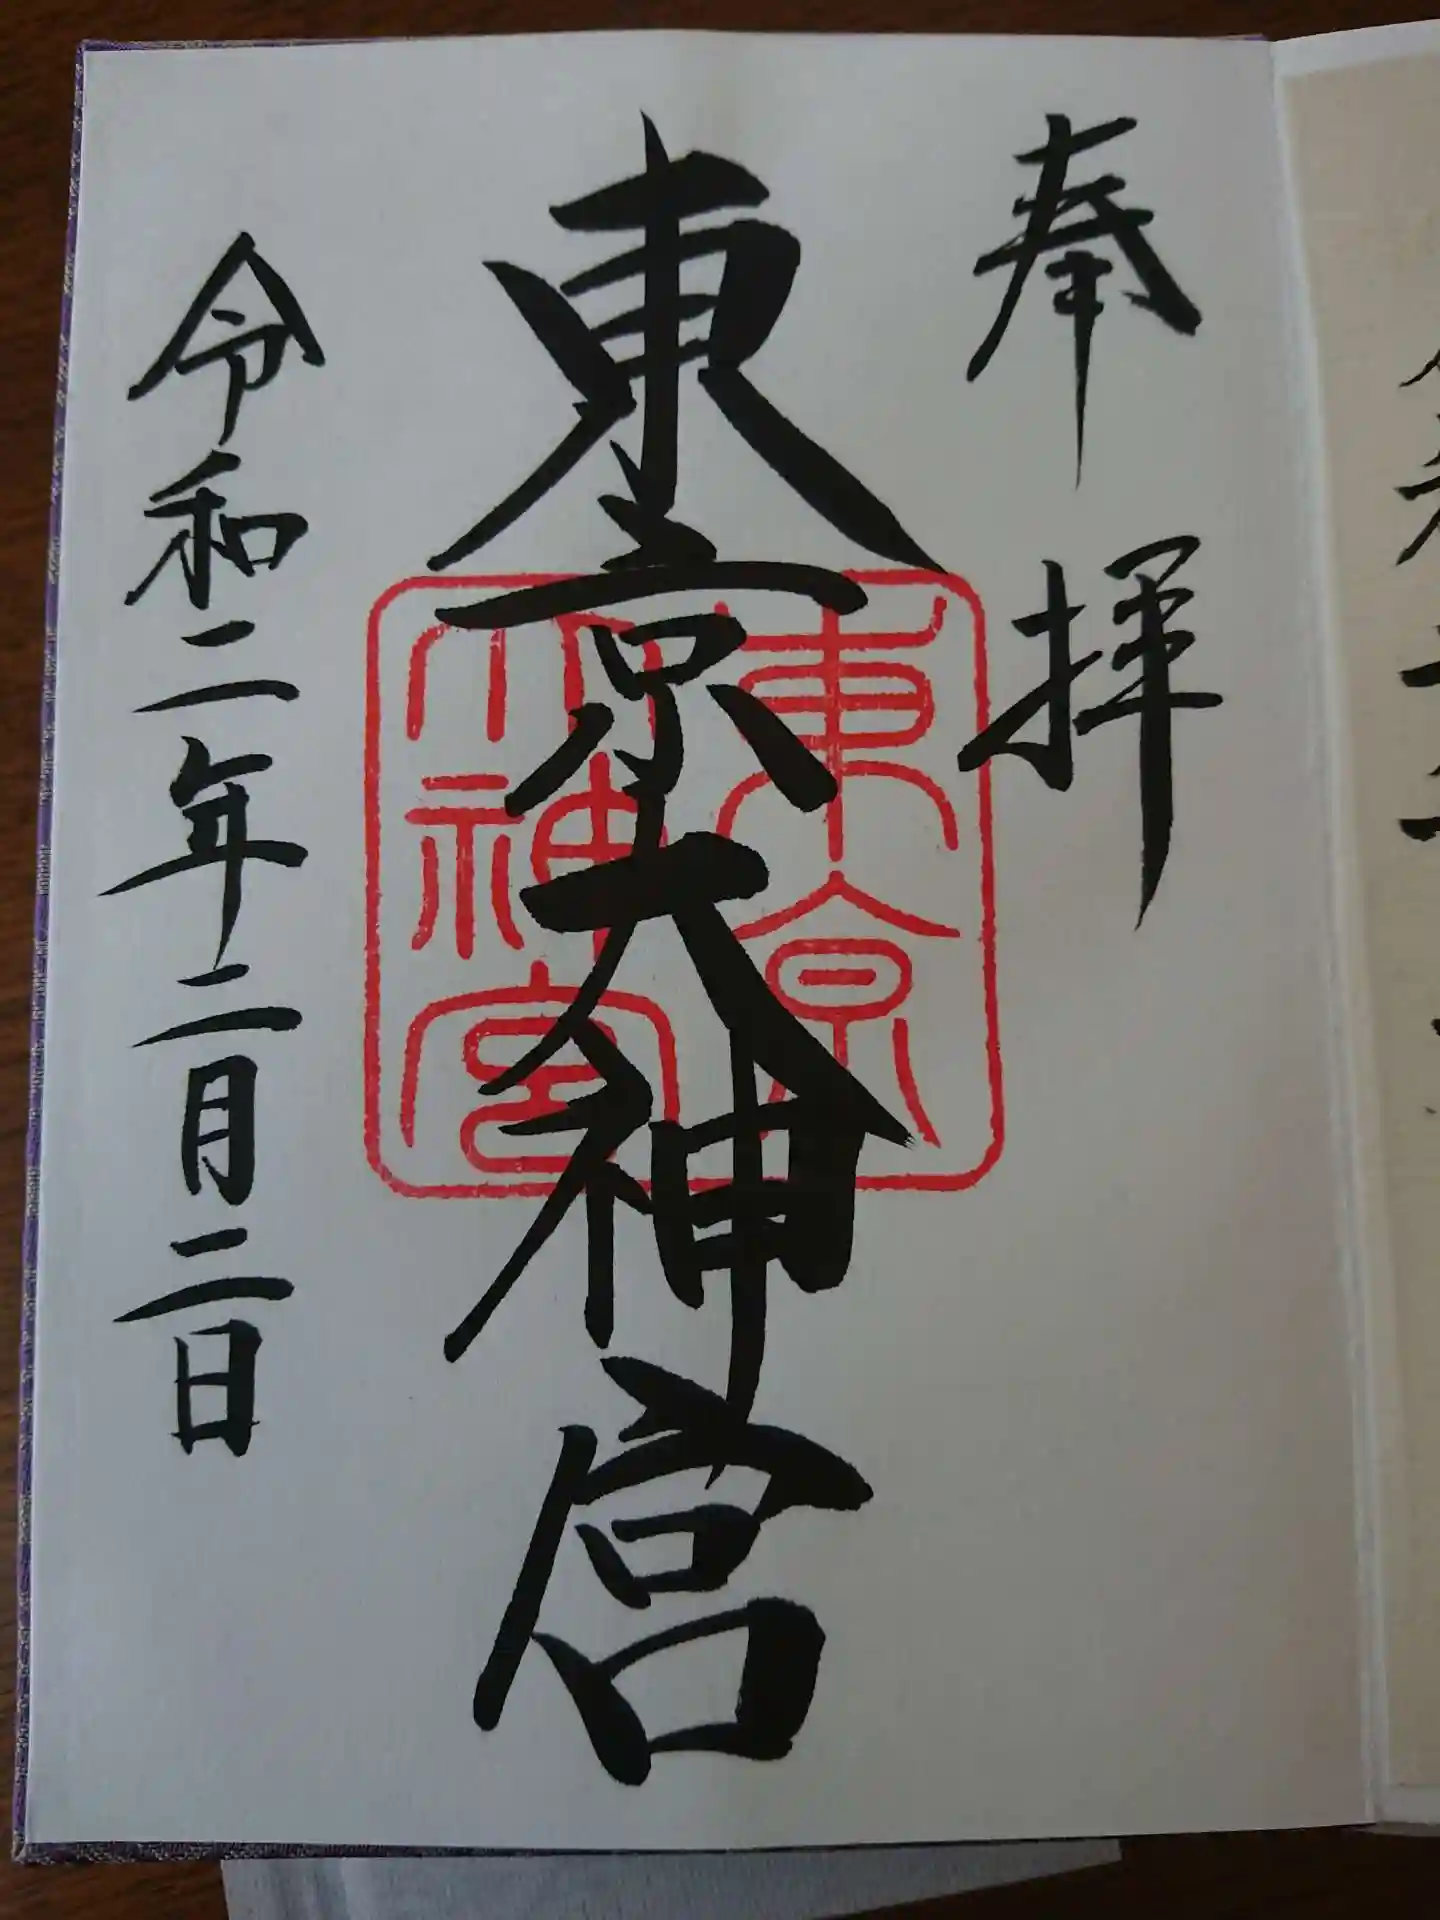 奉拝
東京大神宮
東京大神宮
令和二年二月二日